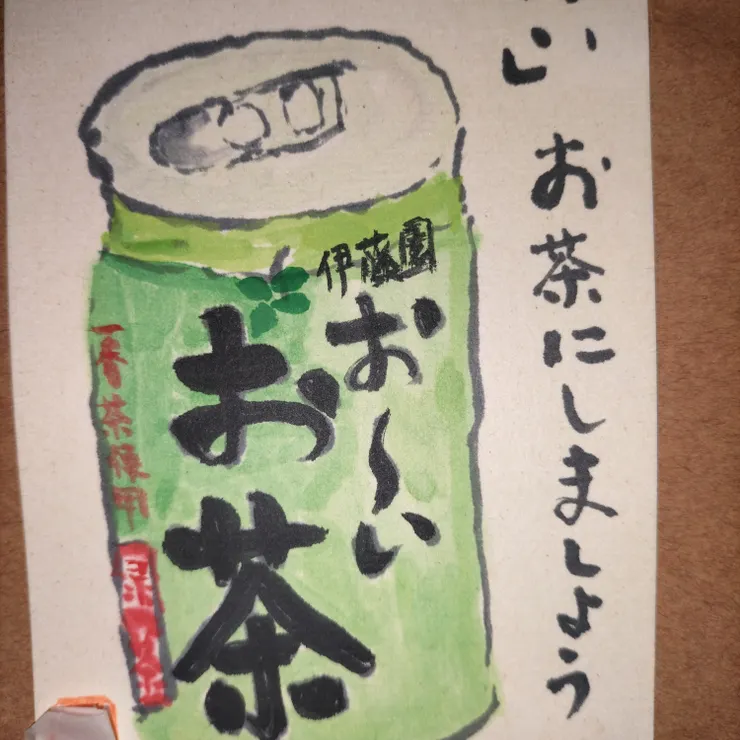 い お茶にしましょう
伊藤園
お〜い
お茶
一番茶使用